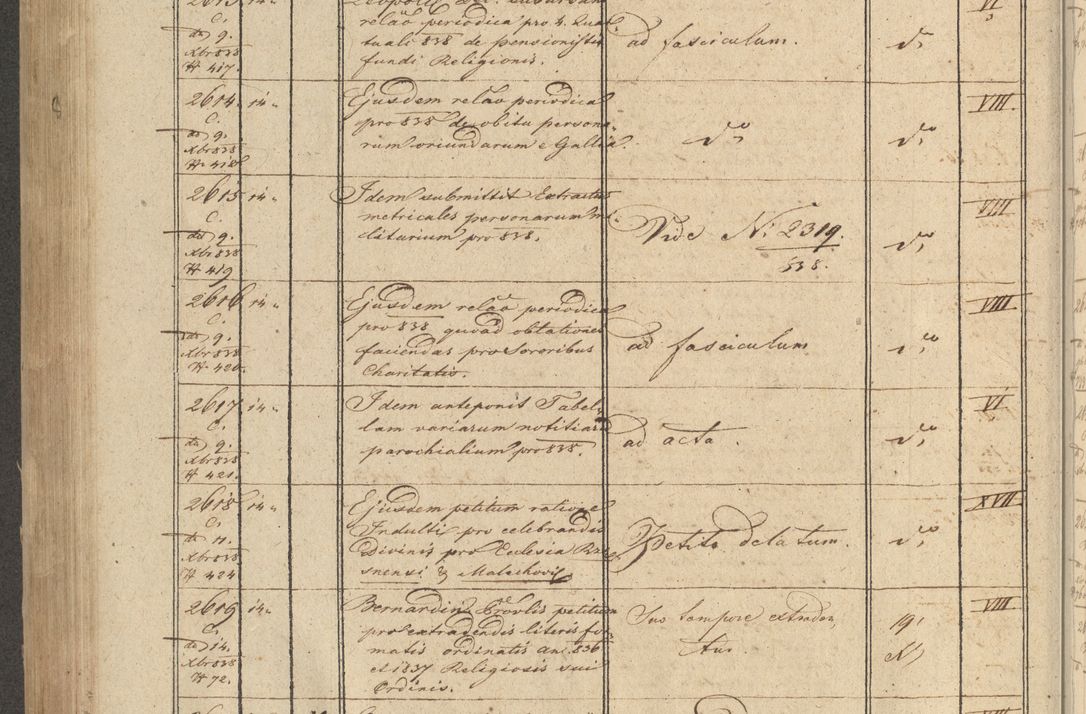 relao periodica pro 4. Quar
tuali 838 de pensionistis
fundi Religionis.
ad fasciculum.
do
de 9.
Xbr 838
N 417.
2614 14.
C.
de 9.
Xbr 838
N 418
Ejusdem relao periodica
pro 838 de obitu persona-
rum oriundarum e Gallia.
do
do
VIII.
2615 14.
C.
de 9.
Xbr 838
N 419
Idem submittit Extractus
metricales personarum mi-
litarium pro 838.
Vide N. 2319.
838.
do
VIII
2616 14.
C.
de 9.
Xbr 838
N. 420.
Ejusdem relao periodica
pro 838 quoad oblationes
faciendas pro Sororibus
Charitatis.
ad fasciculum
do
VIII
2617 14.
C.
de 9.
Xbr 838
N 421.
Idem anteponit Tabel-
lam variarum notitiarum
parochialium pro 838.
ad acta.
do
VI
2618 14.
C.
de 11.
Xbr 838
N 424
Ejusdem petitum ratione
Indulti pro celebrandis
Divinis pro Ecclesia
snensi &
Petito delatum.
do
XVII
2619 14.
C.
de 14.
Xbr 838
N 72.
Bernardin petitum
pro extradendis literis fo-
matis ordinatis an. 836
et 1837 Religiosis sui
Ordinis.
Suo tempore extraden-
tur.
19
VIII